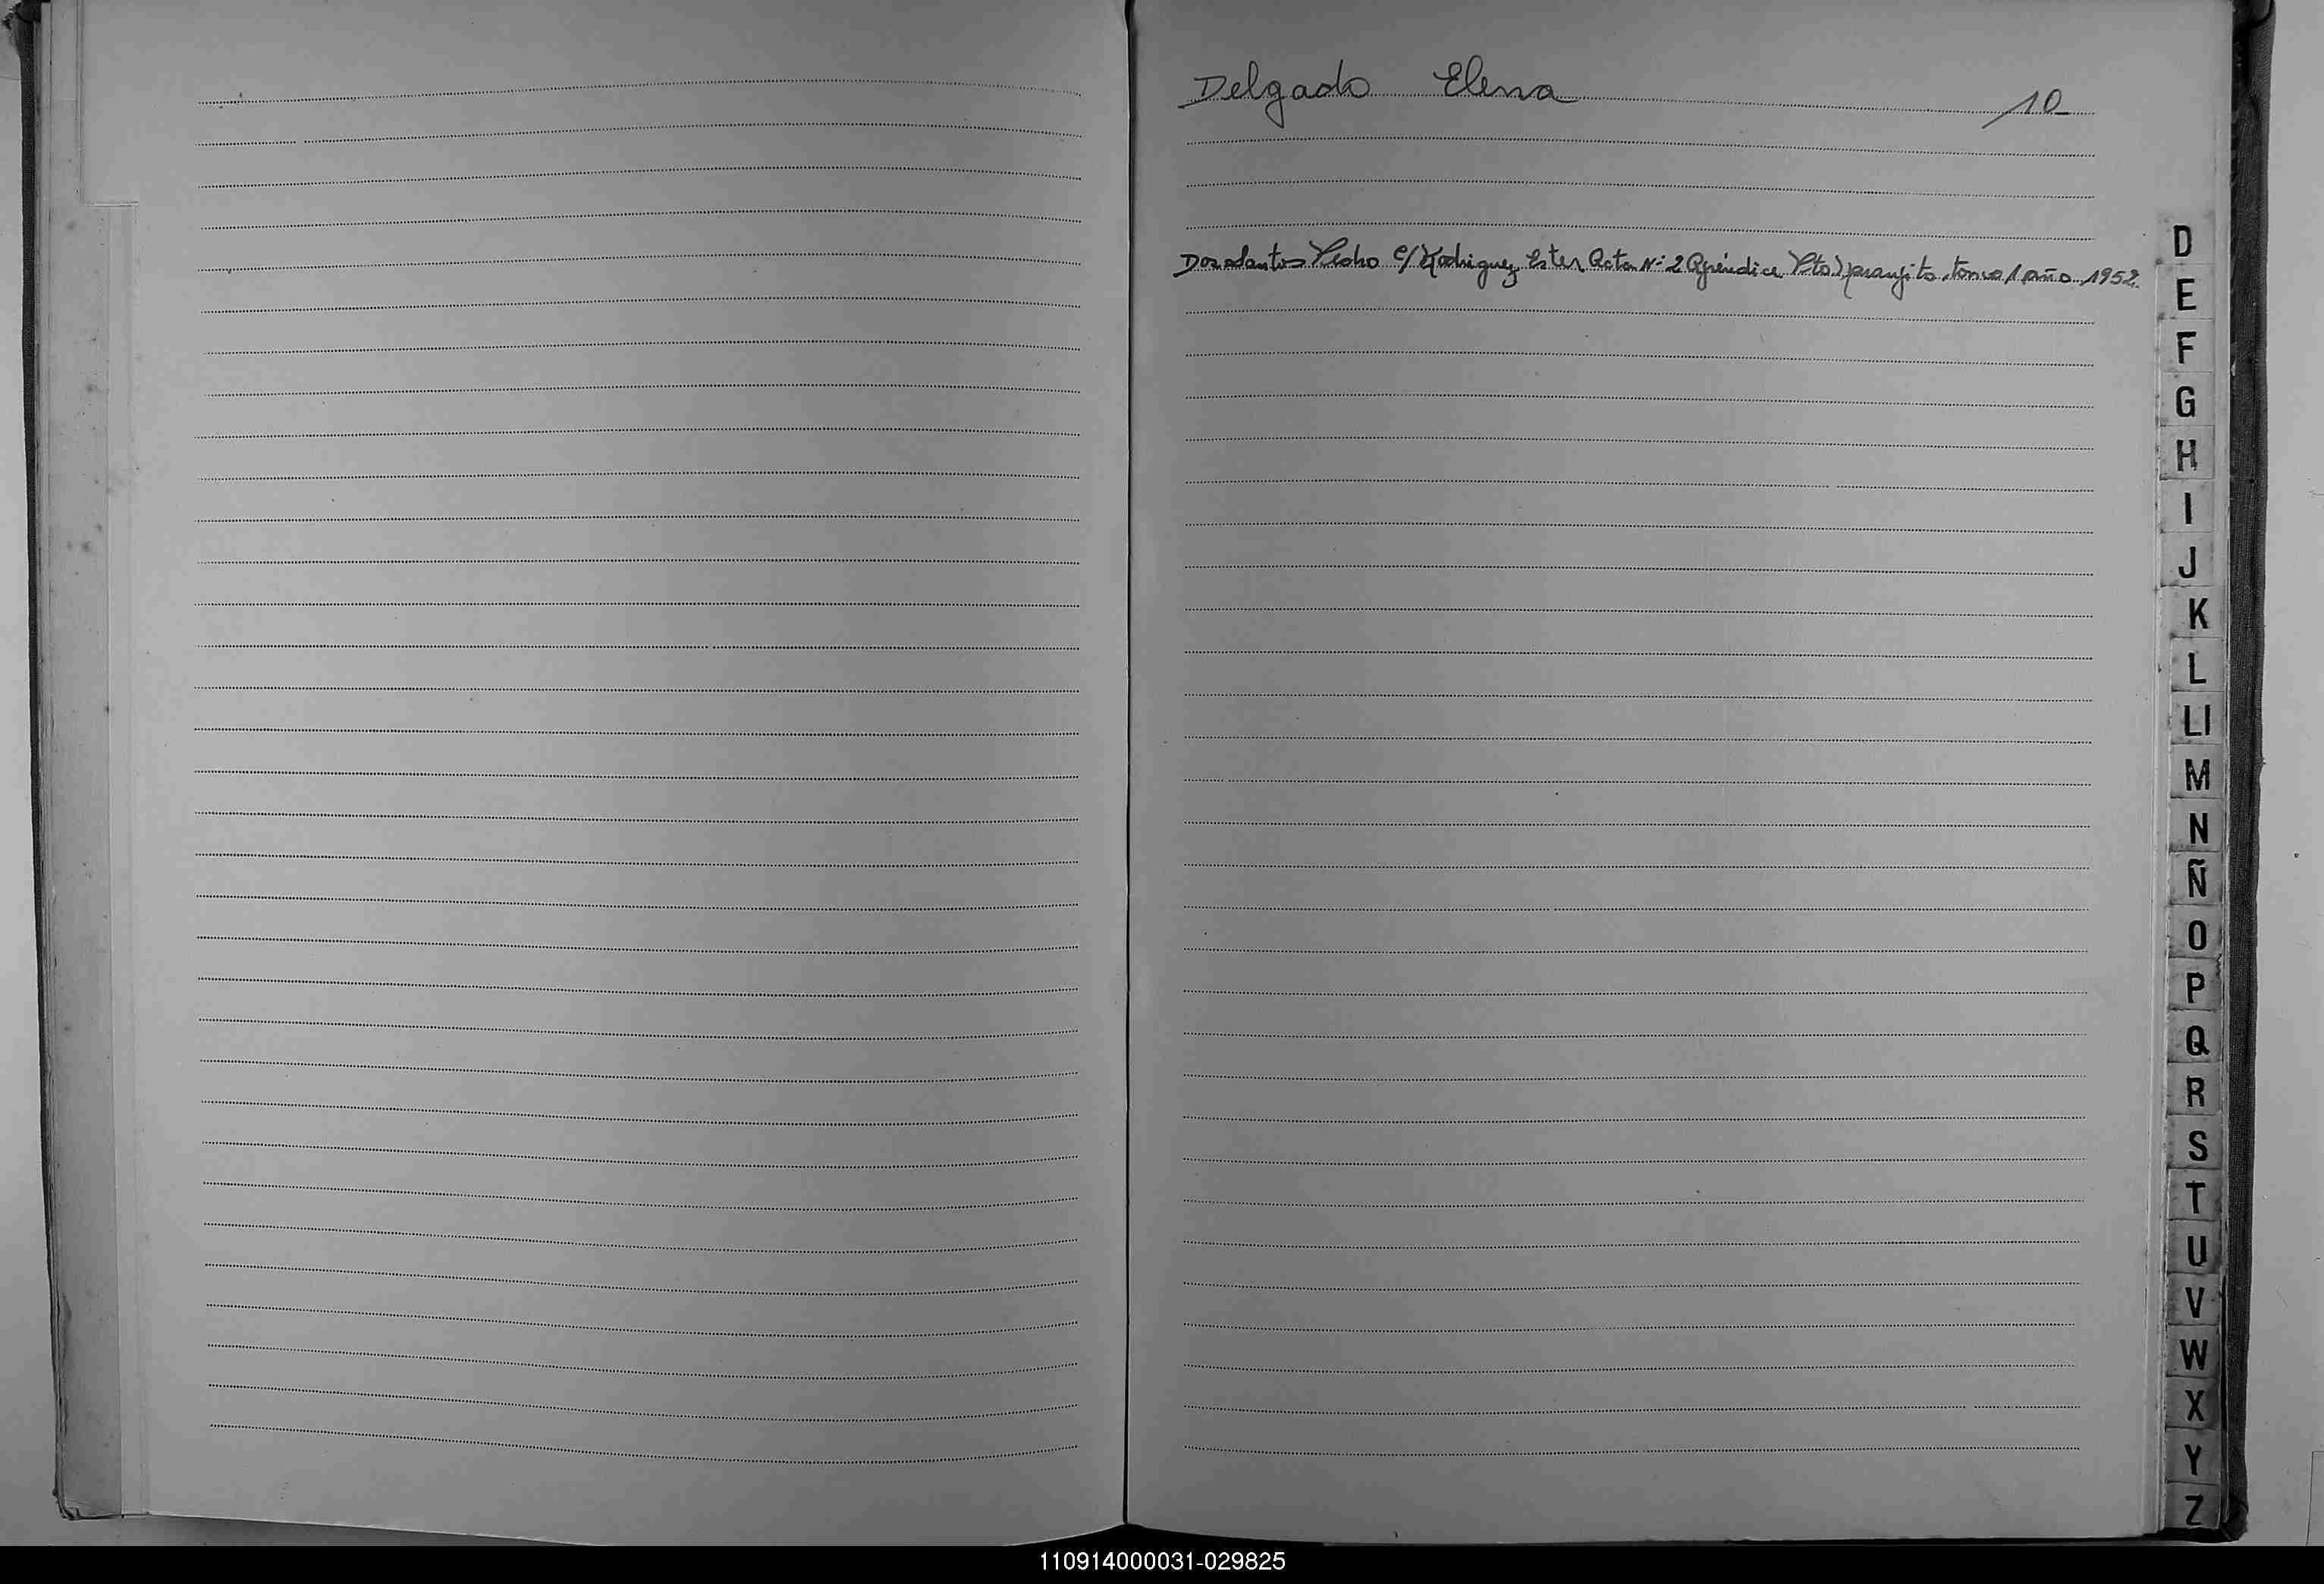 Delgado Elena 10
Dos Santos Pedro c/ Rodriguez Ester Acta Nº 2 Apéndice Pto Naranjito, tomo 1 año 1952.
D
E
F
G
H
I
J
K
L
Ll
M
N
Ñ
O
P
Q
R
S
T
U
V
W
X
Y
Z
110914000031-029825